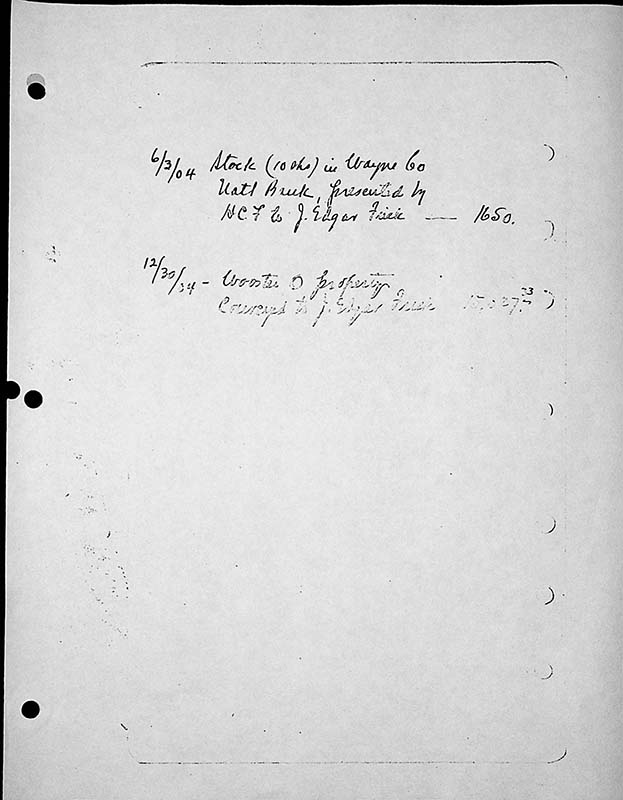 6/3/04 Stock (10 shs) in Wayne Co
Natl Bank, presented by
H C F to J. Edgar Frick — 1650.
12/30/04 - Wooster O property
Conveyed to J. Edgar Frick